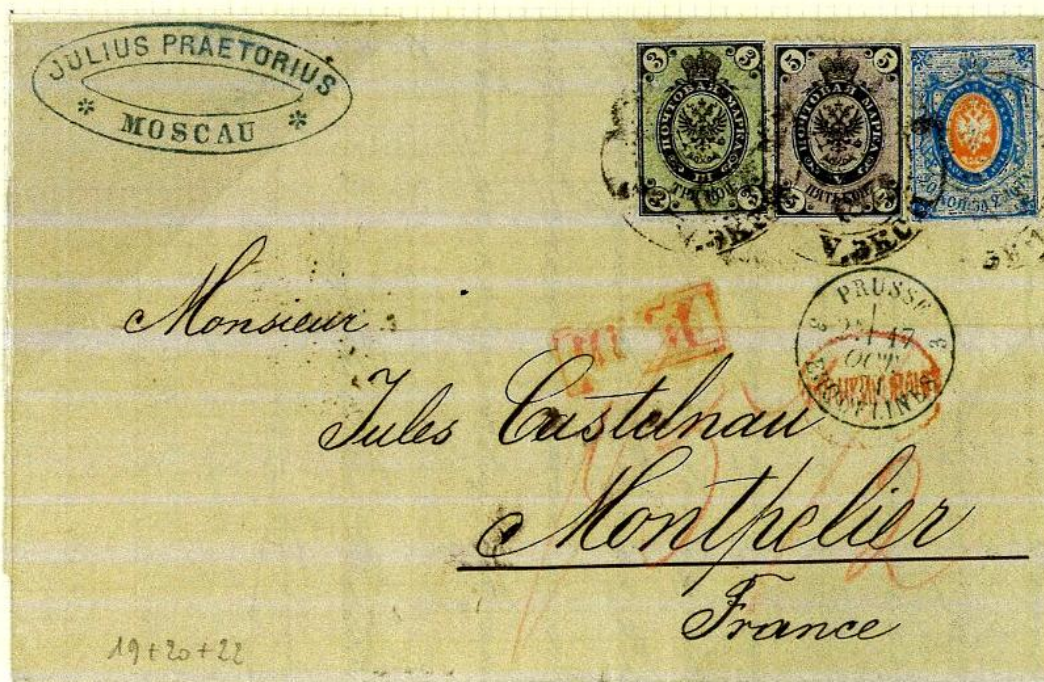 JULIUS PRAETORIUS
* MOSCAU *
3 3
ПОЧТОВАЯ МАРКА
III
ТРИ КОП.
3 3
5 5
ПОЧТОВАЯ МАРКА
V
ПЯТЬ КОП.
5 5
V.ЭКСП
V.ЭКСП
PRUSSE
3 3
17
OCT
ERQUELINES
P.D.
Monsieur
Jules Castelnau
Montpelier
France
19+20+22